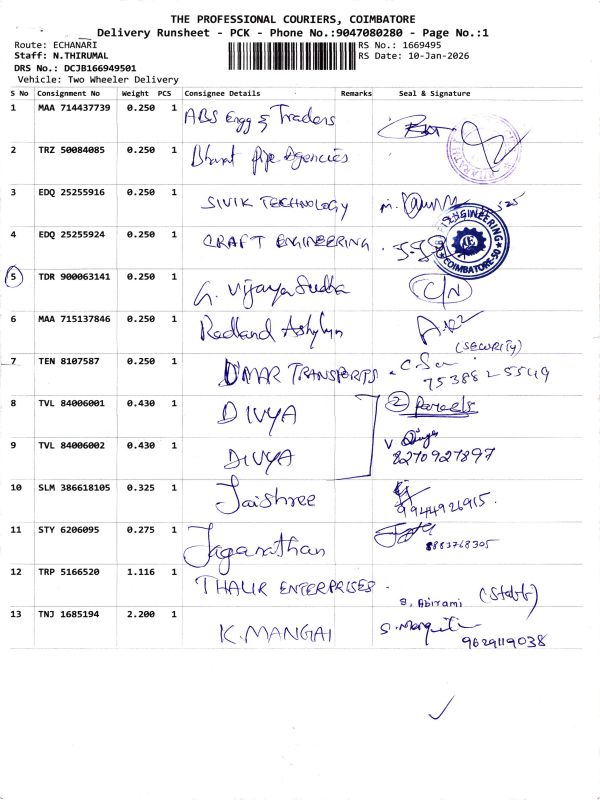 THE PROFESSIONAL COURIERS, COIMBATORE
Delivery Runsheet - PCK - Phone No.:9047080280 - Page No.:1
Route: ECHANARI RS No.: 1669495
Staff: N.THIRUMAL RS Date: 10-Jan-2026
DRS No.: DCJB166949501
Vehicle: Two Wheeler Delivery
S No Consignment No Weight PCS Consignee Details Remarks Seal & Signature
1 MAA 714437739 0.250 1 ABS Engg & Traders
2 TRZ 50084085 0.250 1 Bharat pipe Agencies
3 EDQ 25255916 0.250 1 SIVIK TECHNOLOGY
4 EDQ 25255924 0.250 1 CRAFT ENGINEERING.
ENGINEERING
COIMBATORE-50
5 TDR 900063141 0.250 1 G. Vijaya Sudha C/N
6 MAA 715137846 0.250 1 Redland Ashlyn
(SECURITY)
7 TEN 8107587 0.250 1 DMAR TRANSPORTS
75388 25549
8 TVL 84006001 0.430 1 DIVYA 2 Parcels
9 TVL 84006002 0.430 1 DIVYA V
8270927897
10 SLM 386618105 0.325 1 Jaishree
9944926915.
11 STY 6206095 0.275 1 Jaganathan
8883768305
12 TRP 5166520 1.116 1 THALIR ENTERPRISES.
S. Abirami (Staff)
13 TNJ 1685194 2.200 1 K. MANGAI
9629119038